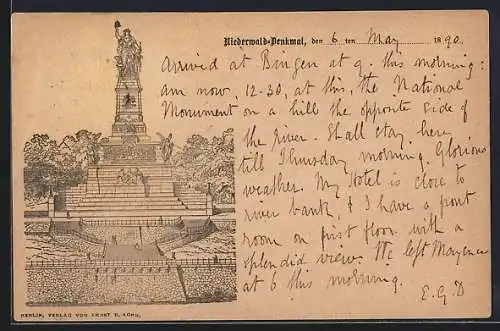 Niederwald-Denkmal, den 6 ten May 1890.
Arrived at Bingen at 9. this morning:
am now, 12-30, at this, the National
Monument on a hill the opposite side of
the river - Shall stay here
till Thursday morning. Glorious
weather. My Hotel is close to
river bank, & I have a front
room on first floor with a
splendid view. We left Mayence
at 6 this morning.
E.G.D
BERLIN, VERLAG VON ERNST H. KÜHN.